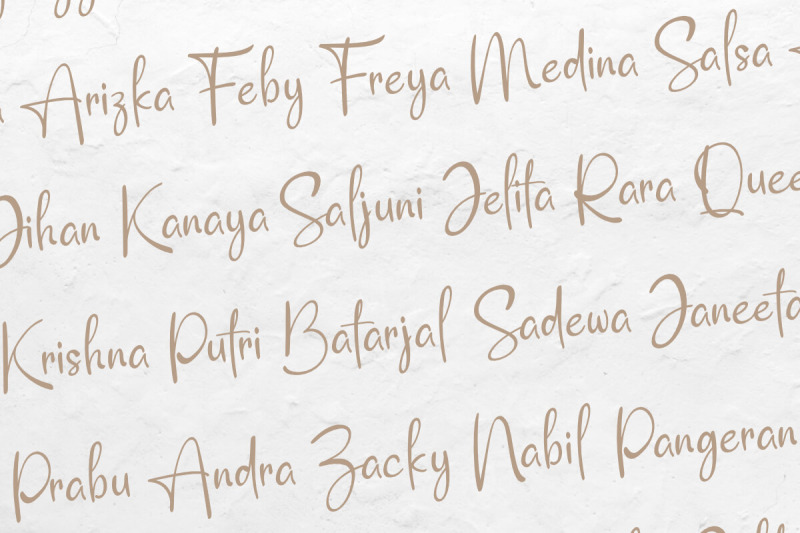 Arizka Feby Freya Medina Salsa
Jihan Kanaya Saljuni Jelita Rara Quee
Krishna Putri Batarjal Sadewa Janeeta
Prabu Andra Zacky Nabil Pangeran